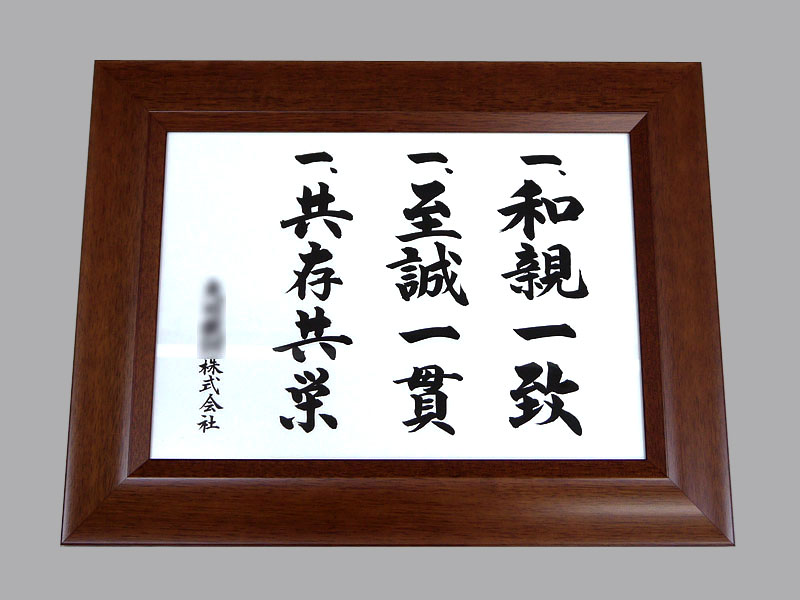 一、和親一致
一、至誠一貫
一、共存共栄
株式会社